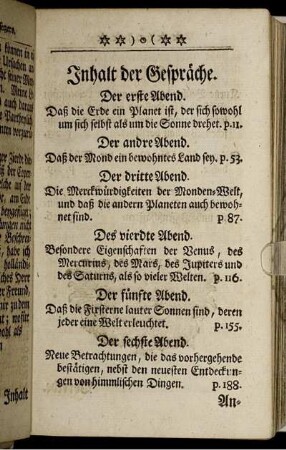 ☆☆ ) o ( ☆☆
Inhalt der Gespräche.
Der erste Abend.
Daß die Erde ein Planet ist, der sich sowohl
um sich selbst als um die Sonne drehet. p. 11.
Der andre Abend.
Daß der Mond ein bewohntes Land sey. p. 53.
Der dritte Abend.
Die Merckwürdigkeiten der Monden-Welt,
und daß die andern Planeten auch bewoh-
net sind. p 87.
Des vierdte Abend.
Besondere Eigenschaften der Venus, des
Mercurius, des Mars, des Jupiters und
des Saturns, als so vieler Welten. p. 116.
Der fünfte Abend.
Daß die Fixsterne lauter Sonnen sind, deren
jeder eine Welt erleuchtet. p. 155.
Der sechste Abend.
Neue Betrachtungen, die das vorhergehende
bestätigen, nebst den neuesten Entdeckun-
gen von himmlischen Dingen. p. 188.
An-
Inhalt